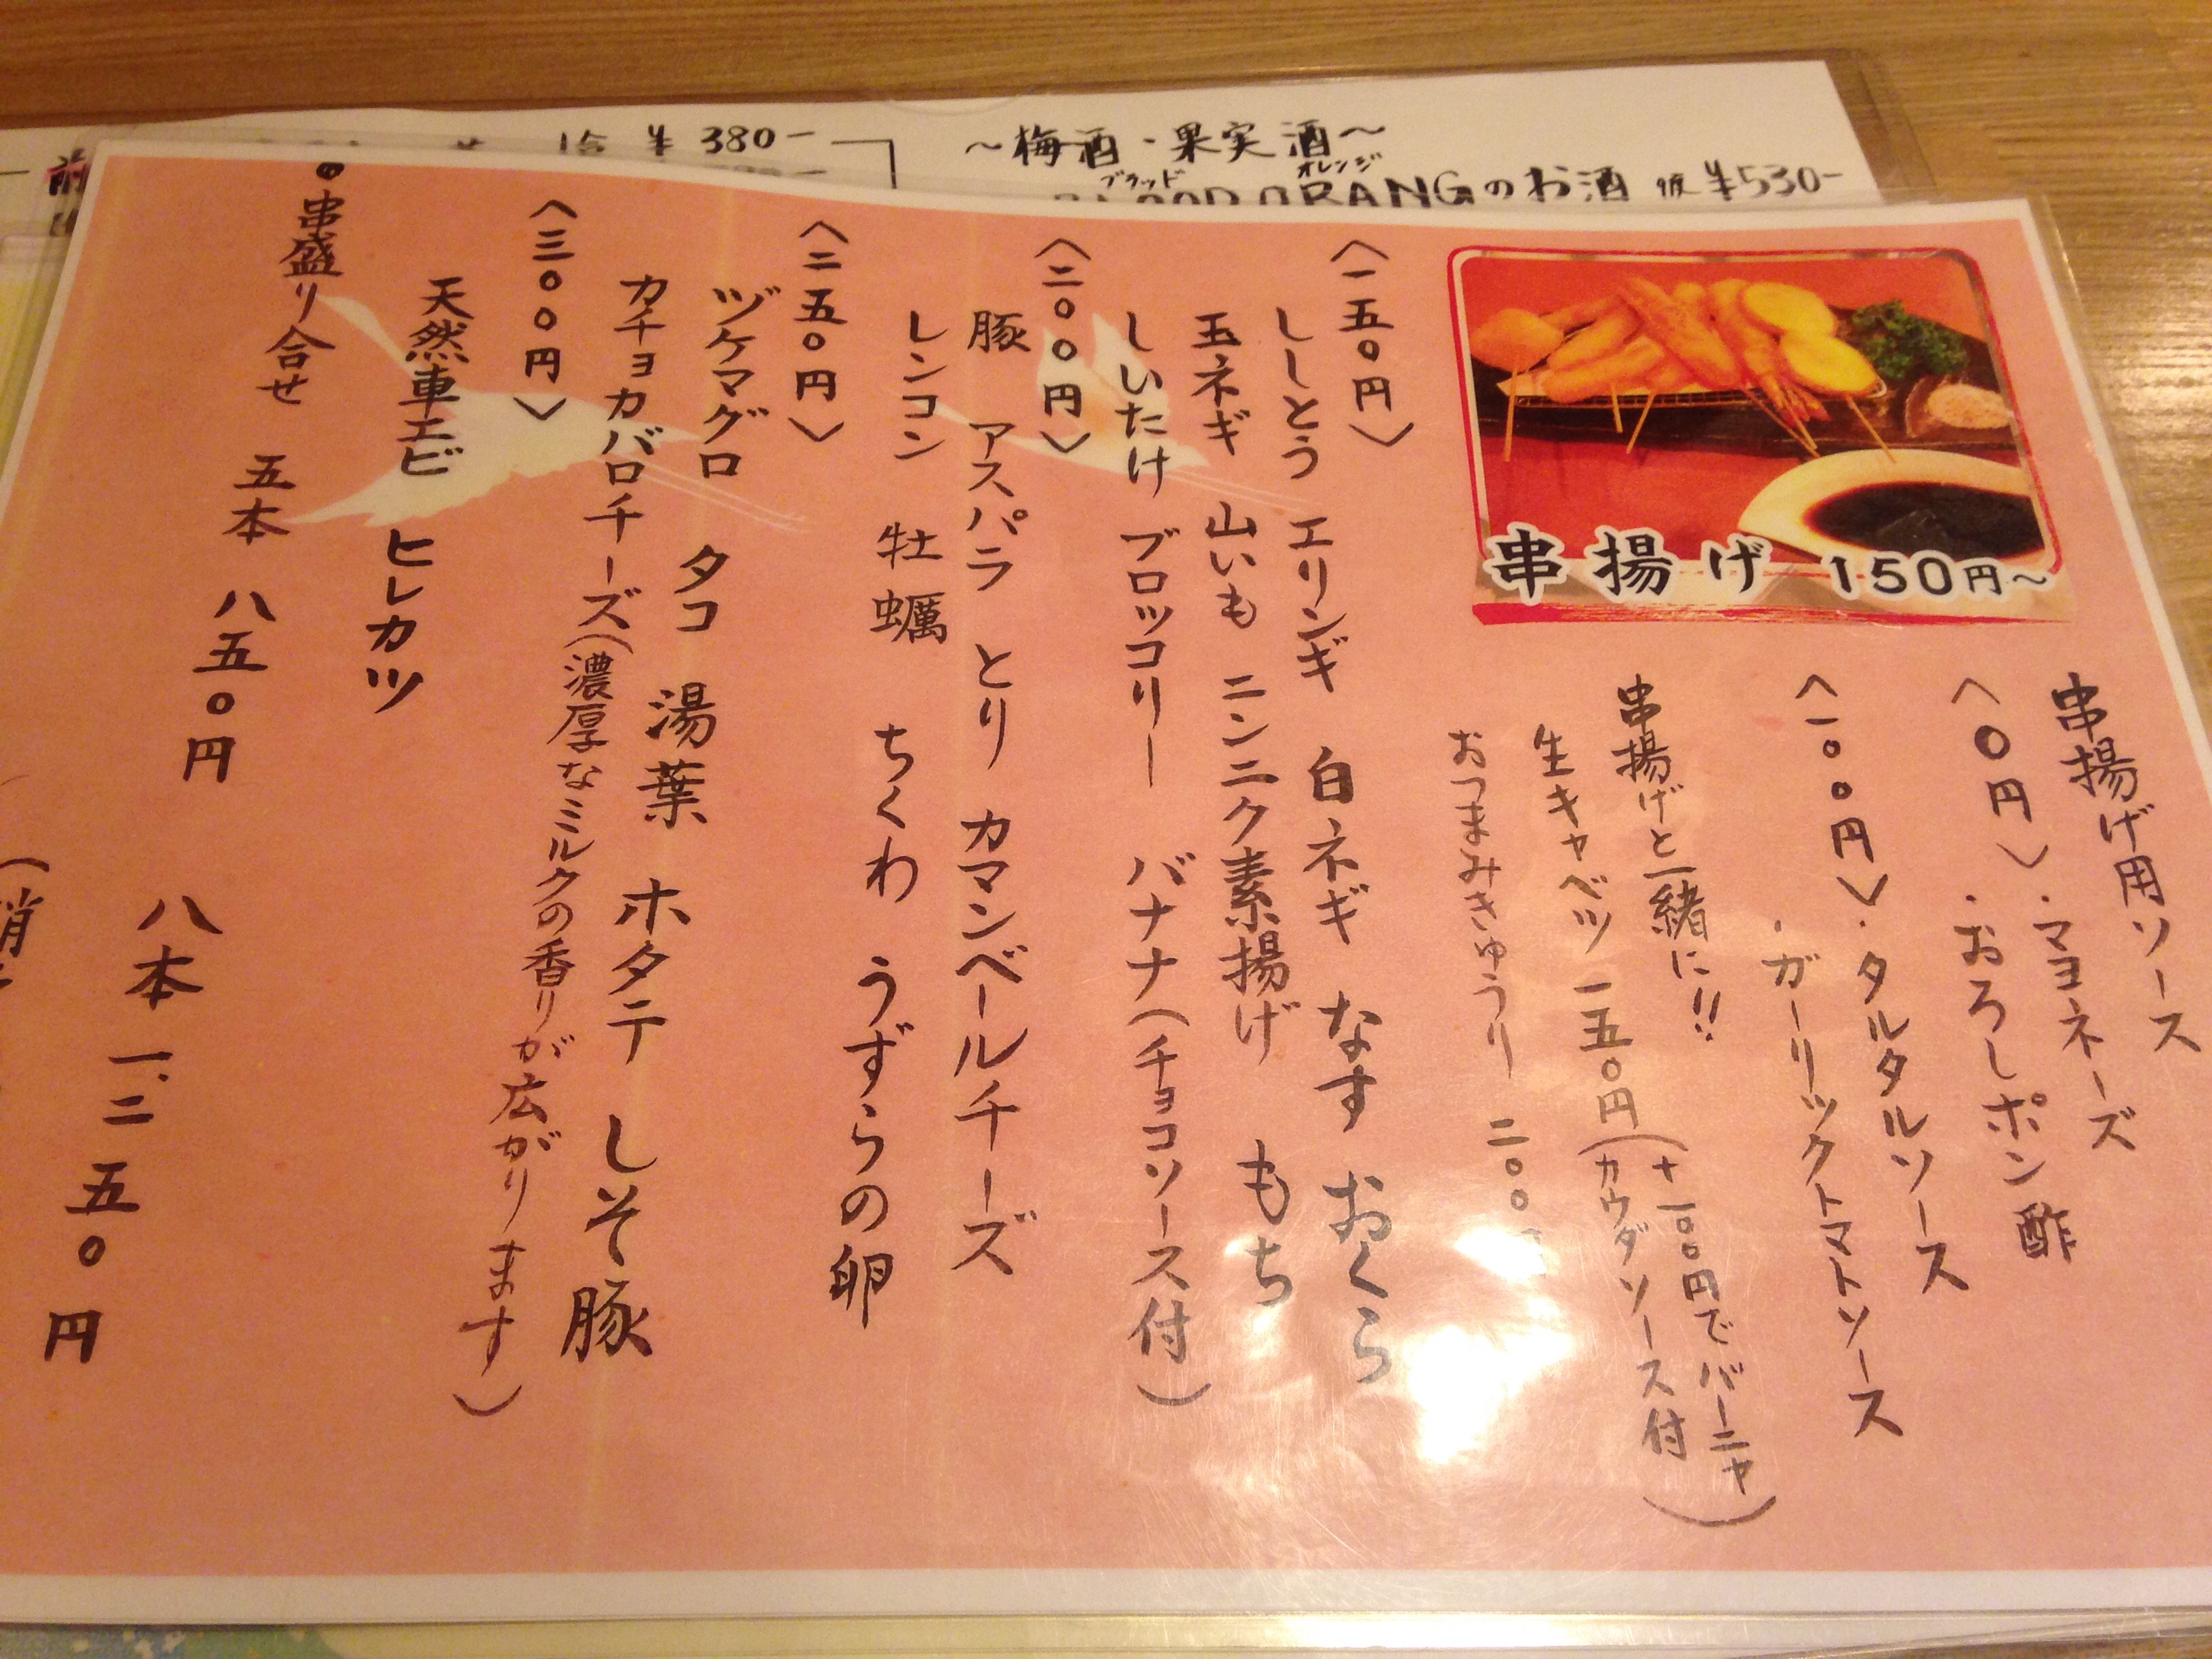 ¥380-
～梅酒・果実酒～
ブラッド オレンジ
BLOOD ORANGのお酒 ¥530-
串揚げ 150円～
串揚げ用ソース
〈〇円〉・マヨネーズ
・おろしポン酢
〈一〇〇円〉・タルタルソース
・ガーリックトマトソース
串揚げと一緒に!!
生キャベツ 一五〇円(+一〇〇円でバーニャ
カウダソース付)
おつまみきゅうり 二〇〇
〈一五〇円〉
ししとう エリンギ 白ネギ なす おくら
玉ネギ 山いも ニンニク素揚げ もち
しいたけ ブロッコリー バナナ(チョコソース付)
〈二〇〇円〉
豚 アスパラ とり カマンベールチーズ
レンコン 牡蠣 ちくわ うずらの卵
〈二五〇円〉
ヅケマグロ タコ 湯葉 ホタテ しそ豚
カチョカバロチーズ(濃厚なミルクの香りが広がります)
〈三〇〇円〉
天然車エビ ヒレカツ
●串盛り合せ 五本 八五〇円
八本 一、二五〇円